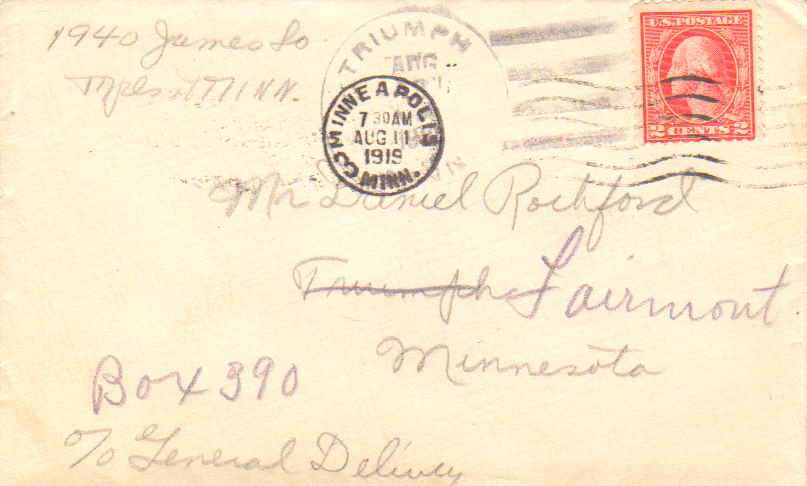 1940 James So
Mpls Minn.
TRIUMPH
AUG
MINNEAPOLIS
7 30 AM
AUG 11
1919
MINN.
U.S. POSTAGE
2 CENTS 2
Mr Daniel Rochford
Triumph Fairmont
Minnesota
Box 390
c/o General Delivey